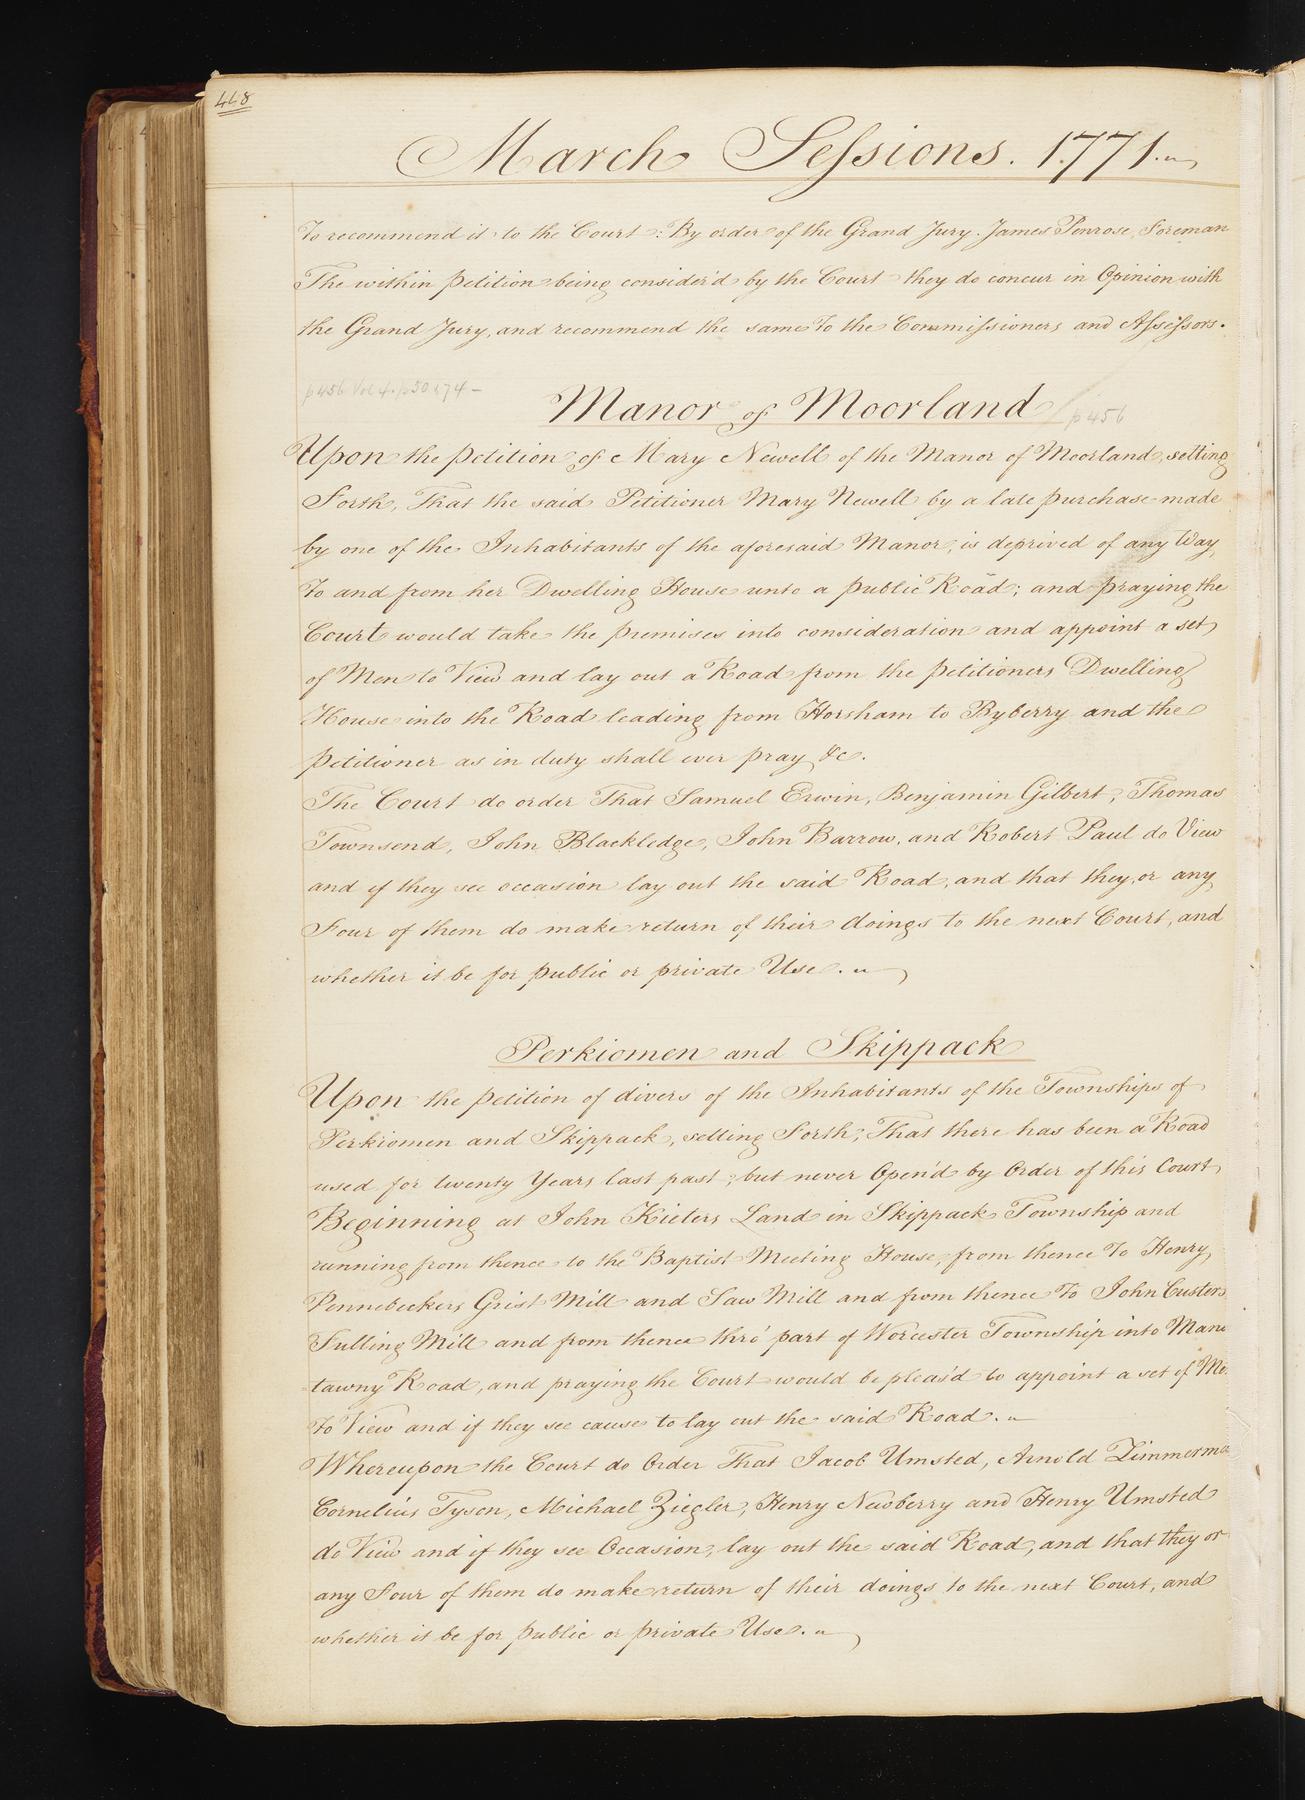 448
March Sessions. 1771.
To recommend it to the Court: By order of the Grand Jury. James Penrose, Foreman
The within petition being consider'd by the Court they do concur in Opinion with
the Grand Jury, and recommend the same To the Commissioners and Assessors.
p456 Vol 4. p50 &74 –
Manor of Moorland
p456
Upon the petition of Mary Newell of the Manor of Moorland, setting
Forth, That the said Petitioner Mary Newell by a late purchase made
by one of the Inhabitants of the aforesaid Manor, is deprived of any Way
To and from her Dwelling House unto a public Road; and praying the
Court would take the premises into consideration and appoint a set
of Men to View and lay out a Road from the petitioners Dwelling
House into the Road leading from Horsham to Byberry and the
petitioner as in duty shall ever pray &c.
The Court do order That Samuel Erwin, Benjamin Gilbert, Thomas
Townsend, John Blackledge, John Barrow, and Robert Paul do View
and if they see occasion lay out the said Road, and that they, or any
Four of them do make return of their doings to the next Court, and
whether it be for public or private Use.
Perkiomen and Skippack
Upon the petition of divers of the Inhabitants of the Townships of
Perkiomen and Skippack, setting Forth; That there has been a Road
used for twenty Years last past; but never Open'd by Order of this Court
Beginning at John Kieters Land in Skippack Township and
running from thence to the Baptist Meeting House, from thence To Henry
Pennebeckers Grist Mill and Saw Mill and from thence To John Custers
Fulling Mill and from thence thro' part of Worcester Township into Mana
tawny Road, and praying the Court would be pleas'd to appoint a set of Me
To View and if they see cause to lay out the said Road.
Whereupon the Court do Order That Jacob Umsted, Arnold Zimmerma
Cornelius Tyson, Michael Ziegler, Henry Newberry and Henry Umsted
do View and if they see Occasion, lay out the said Road, and that they or
any Four of them do make return of their doings to the next Court, and
whether it be for public or private Use.